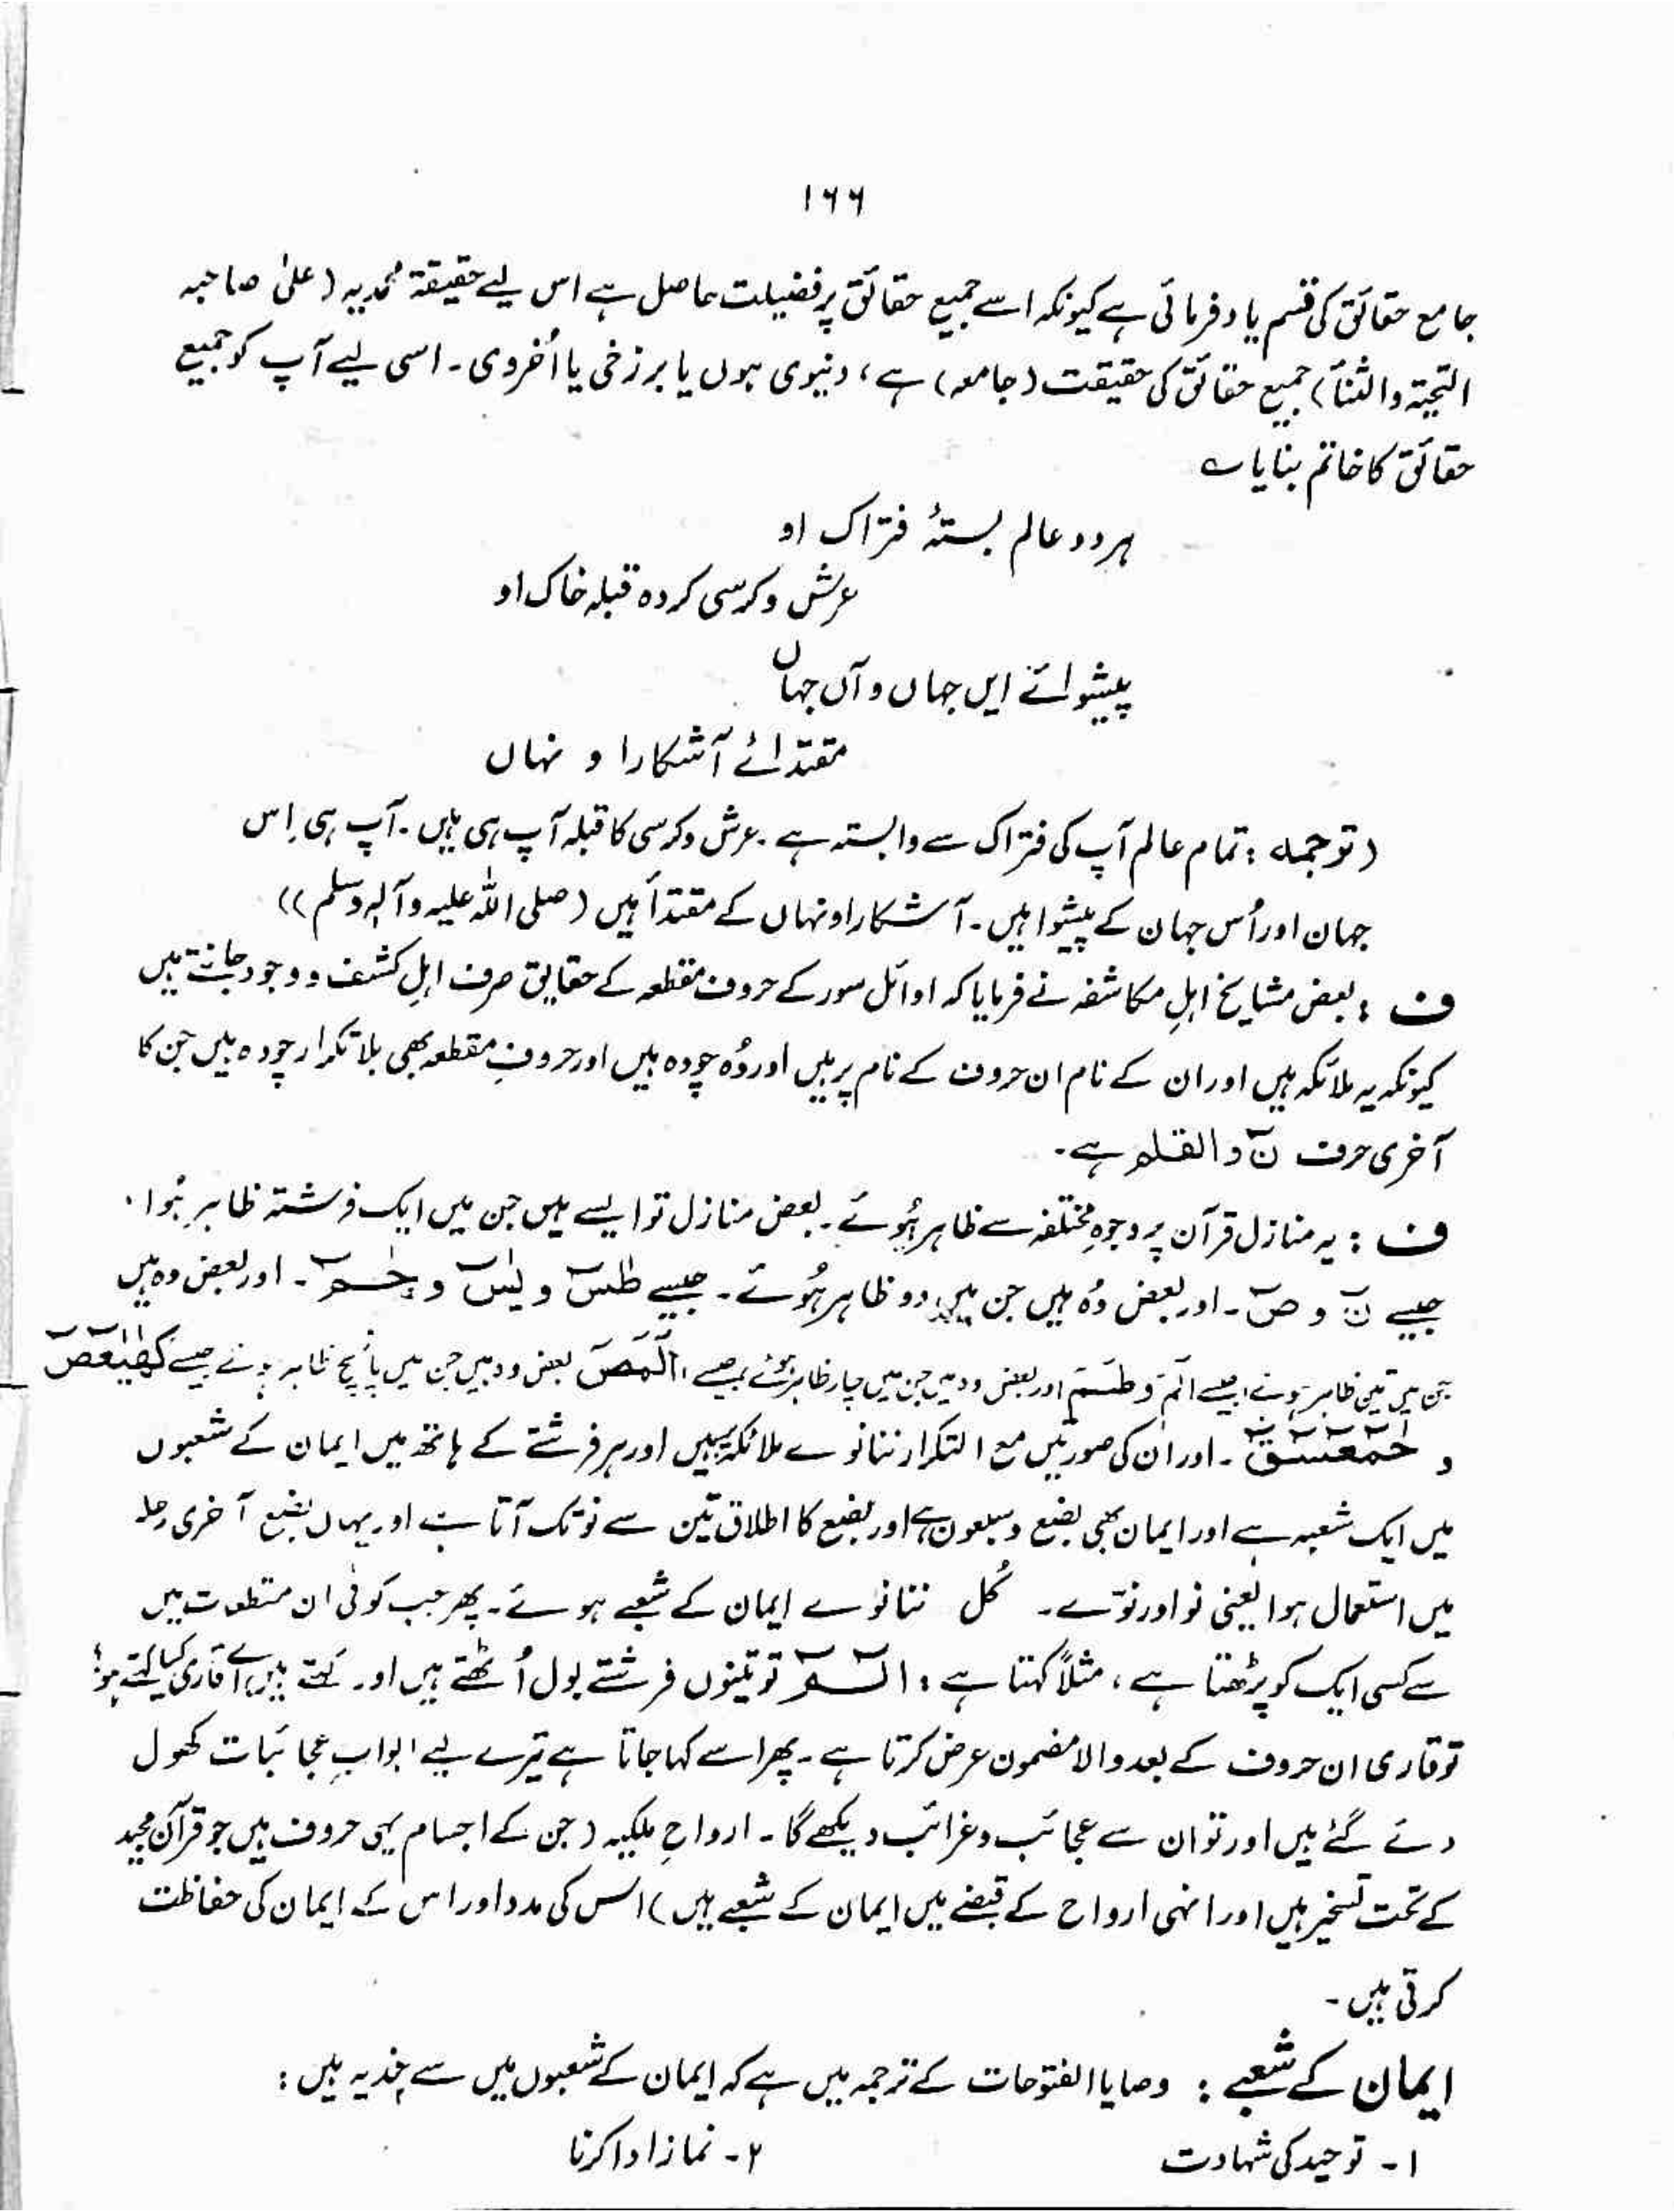 ۱۶۶
جامع حقائق کی قسم یاد فرمائی ہے کیونکہ اسے جمیع حقائق پر فضیلت حاصل ہے اس لیے حقیقۃ محمدیہ (علیٰ صاحبہ
التحیۃ والثنأ) جمیع حقائق کی حقیقت (جامعہ) ہے، دنیوی ہوں یا برزخی یا اُخروی۔ اسی لیے آپ کو جمیع
حقائق کا خاتم بنایا ؎
ہر دو عالم بستۂ فتراک او
عرش و کرسی کردہ قبلہ خاک او
پیشوائے ایں جہاں و آں جہاں
مقتدائے آشکارا و نہاں
(توجمہ : تمام عالم آپ کی فتراک سے وابستہ ہے۔ عرش و کرسی کا قبلہ آپ ہی ہیں۔ آپ ہی اِس
جہان اور اُس جہان کے پیشوا ہیں۔ آشکارا و نہاں کے مقتدأ ہیں (صلی اللہ علیہ وآلہ وسلم))
ف : بعض مشایخ اہلِ مکاشفہ نے فرمایا کہ اوائل سور کے حروف مقطعہ کے حقایق صرف اہلِ کشف و وجود جانتے ہیں
کیونکہ یہ ملائکہ ہیں اور ان کے نام ان حروف کے نام پر ہیں اور وُہ چودہ ہیں اور حروفِ مقطعہ بھی بلا تکرار چودہ ہیں جن کا
آخری حرف نٓ والقلم ہے۔
ف : یہ منازل قرآن پر وجوہِ مختلفہ سے ظاہر ہُوئے۔ بعض منازل تو ایسے ہیں جن میں ایک فرشتہ ظاہر ہُوا۔
جیسے نٓ و صٓ۔ اور بعض وُہ ہیں جن میں دو ظاہر ہُوئے۔ جیسے طٰسٓ و یٰسٓ و حٰمٓ۔ اور بعض وہ ہیں
جن میں تین ظاہر ہوئے جیسے الٓمٓ و طٰسٓمٓ اور بعض وہ ہیں جن میں چار ظاہر ہوئے جیسے الٓمٓصٓ بعض وہ ہیں جن میں پانچ ظاہر ہوئے جیسے کٓھٰیٰعٓصٓ
و حٰمٓعٓسٓقٓ۔ اور ان کی صورتیں مع التکرار ننانوے ملائکہ ہیں اور ہر فرشتے کے ہاتھ میں ایمان کے شعبوں
میں ایک شعبہ ہے اور ایمان بھی بضع وسبعون ہے اور بضع کا اطلاق تین سے نو تک آتا ہے اور یہاں بضع آخری
میں استعمال ہوا یعنی نو اور نوّے۔ کُل ننانوے ایمان کے شعبے ہوئے۔ پھر جب کوئی ان مقطعات میں
سے کسی ایک کو پڑھتا ہے، مثلاً کہتا ہے : الٓمٓ تو تینوں فرشتے بول اُٹھتے ہیں اور کہتے ہیں اے قاری کیا کہتے ہو؟
تو قاری ان حروف کے بعد والا مضمون عرض کرتا ہے۔ پھر اسے کہا جاتا ہے تیرے لیے ابوابِ عجائبات کھول
دئے گئے ہیں اور تو ان سے عجائب و غرائب دیکھے گا۔ ارواحِ ملکیہ (جن کے اجسام یہی حروف ہیں جو قرآن مجید
کے تحت تسخیر ہیں اور انہی ارواح کے قبضے میں ایمان کے شعبے ہیں) اس کی مدد اور اس کے ایمان کی حفاظت
کرتی ہیں۔
ایمان کے شعبے : وصایا الفتوحات کے ترجمہ میں ہے کہ ایمان کے شعبوں میں سے چند یہ ہیں :
۱۔ توحید کی شہادت ۲۔ نماز ادا کرنا